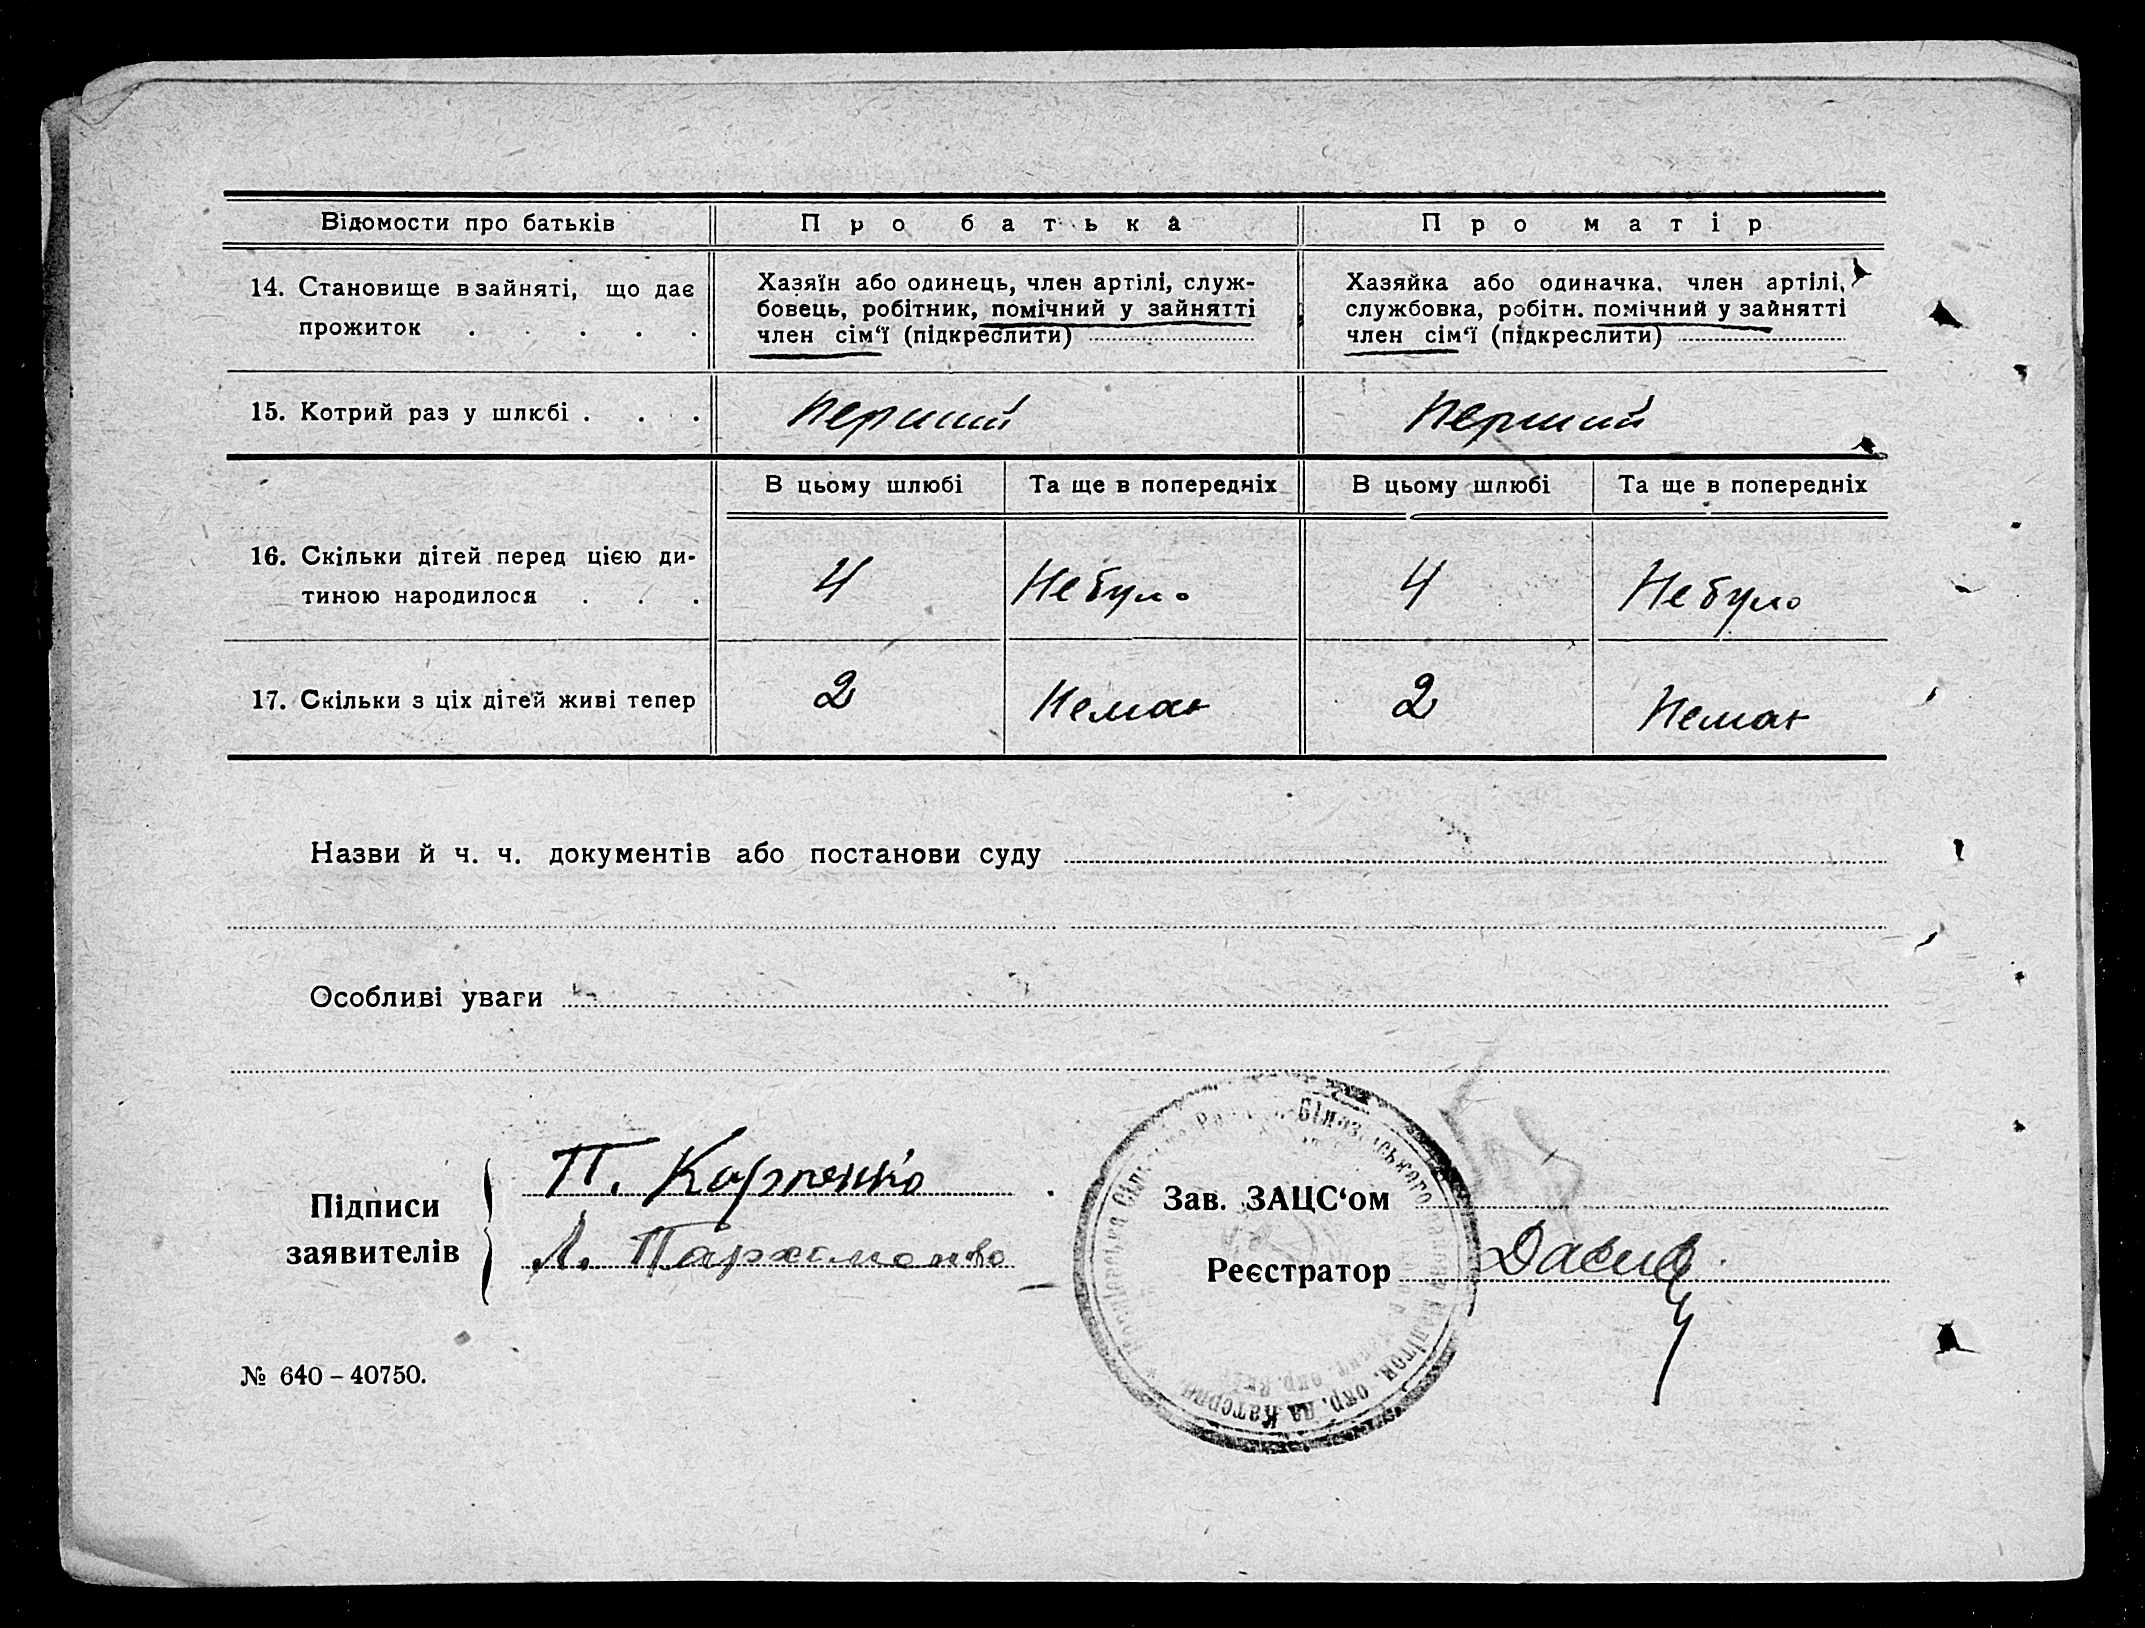 Відомости про батьків
Про батька
Про матір
14. Становище в зайняті, що дає
прожиток . . . . .
Хазяїн або одинець, член артілі, служ-
бовець, робітник, помічний у зайнятті
член сім‘ї (підкреслити)
Хазяйка або одиначка, член артілі,
службовка, робітн. помічний у зайнятті
член сім‘ї (підкреслити)
15. Котрий раз у шлюбі . . .
Перший
Перший
В цьому шлюбі
Та ще в попередніх
В цьому шлюбі
Та ще в попередніх
16. Скільки дітей перед цією ди-
тиною народилося . . .
4
Небуло
4
Небуло
17. Скільки з ціх дітей живі тепер
2
Немає
2
Немає
Назви й ч. ч. документів або постанови суду
Особливі уваги
Підписи
заявителів
П. Карпенко
Л. Пархоменко
Зав. ЗАЦС‘ом
Реєстратор
№ 640 – 40750.
окр. на Катерин.